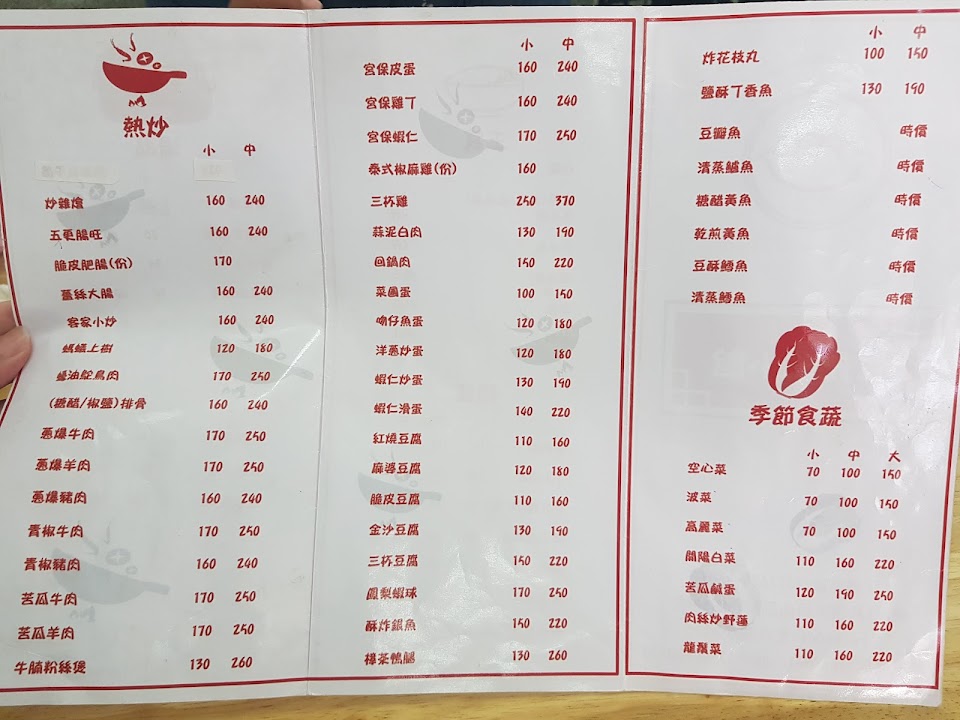 熱炒
小 中
炒雜燴 160 240
五更腸旺 160 240
脆皮肥腸(份) 170
薑絲大腸 160 240
客家小炒 160 240
螞蟻上樹 120 180
蠔油鴕鳥肉 170 250
(糖醋/椒鹽)排骨 160 240
蔥爆牛肉 170 250
蔥爆羊肉 170 250
蔥爆豬肉 160 240
青椒牛肉 170 250
青椒豬肉 160 240
苦瓜牛肉 170 250
苦瓜羊肉 170 250
牛腩粉絲煲 130 260
小 中
宮保皮蛋 160 240
宮保雞丁 160 240
宮保蝦仁 170 250
泰式椒麻雞(份) 160
三杯雞 250 370
蒜泥白肉 130 190
回鍋肉 150 220
菜圃蛋 100 150
吻仔魚蛋 120 180
洋蔥炒蛋 120 180
蝦仁炒蛋 130 190
蝦仁滑蛋 140 220
紅燒豆腐 110 160
麻婆豆腐 120 180
脆皮豆腐 110 160
金沙豆腐 130 190
三杯豆腐 150 220
鳳梨蝦球 170 250
酥炸銀魚 150 220
樟茶鴨腿 130 260
小 中
炸花枝丸 100 150
鹽酥丁香魚 130 190
豆瓣魚 時價
清蒸鱸魚 時價
糖醋黃魚 時價
乾煎黃魚 時價
豆酥鱈魚 時價
清蒸鱈魚 時價
季節食蔬
小 中 大
空心菜 70 100 150
波菜 70 100 150
高麗菜 70 100 150
開陽白菜 110 160 220
苦瓜鹹蛋 120 190 250
肉絲炒野蓮 110 160 220
龍鬚菜 110 160 220